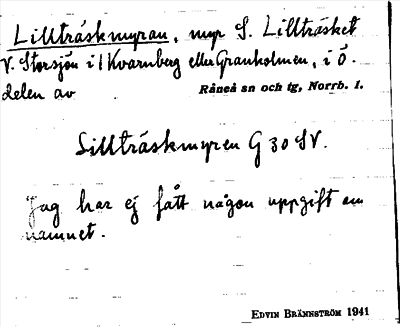 Lillträskmyran, myr S. Lillträsket
V. Storsjön i l Kvarnberg eller Granholmen, i ö.
delen av Råneå sn och tg, Norrb. l.
Lillträskmyren G 30 SV.
Jag har ej fått någon uppgift om
namnet.
EDVIN BRÄNNSTRÖM 1941